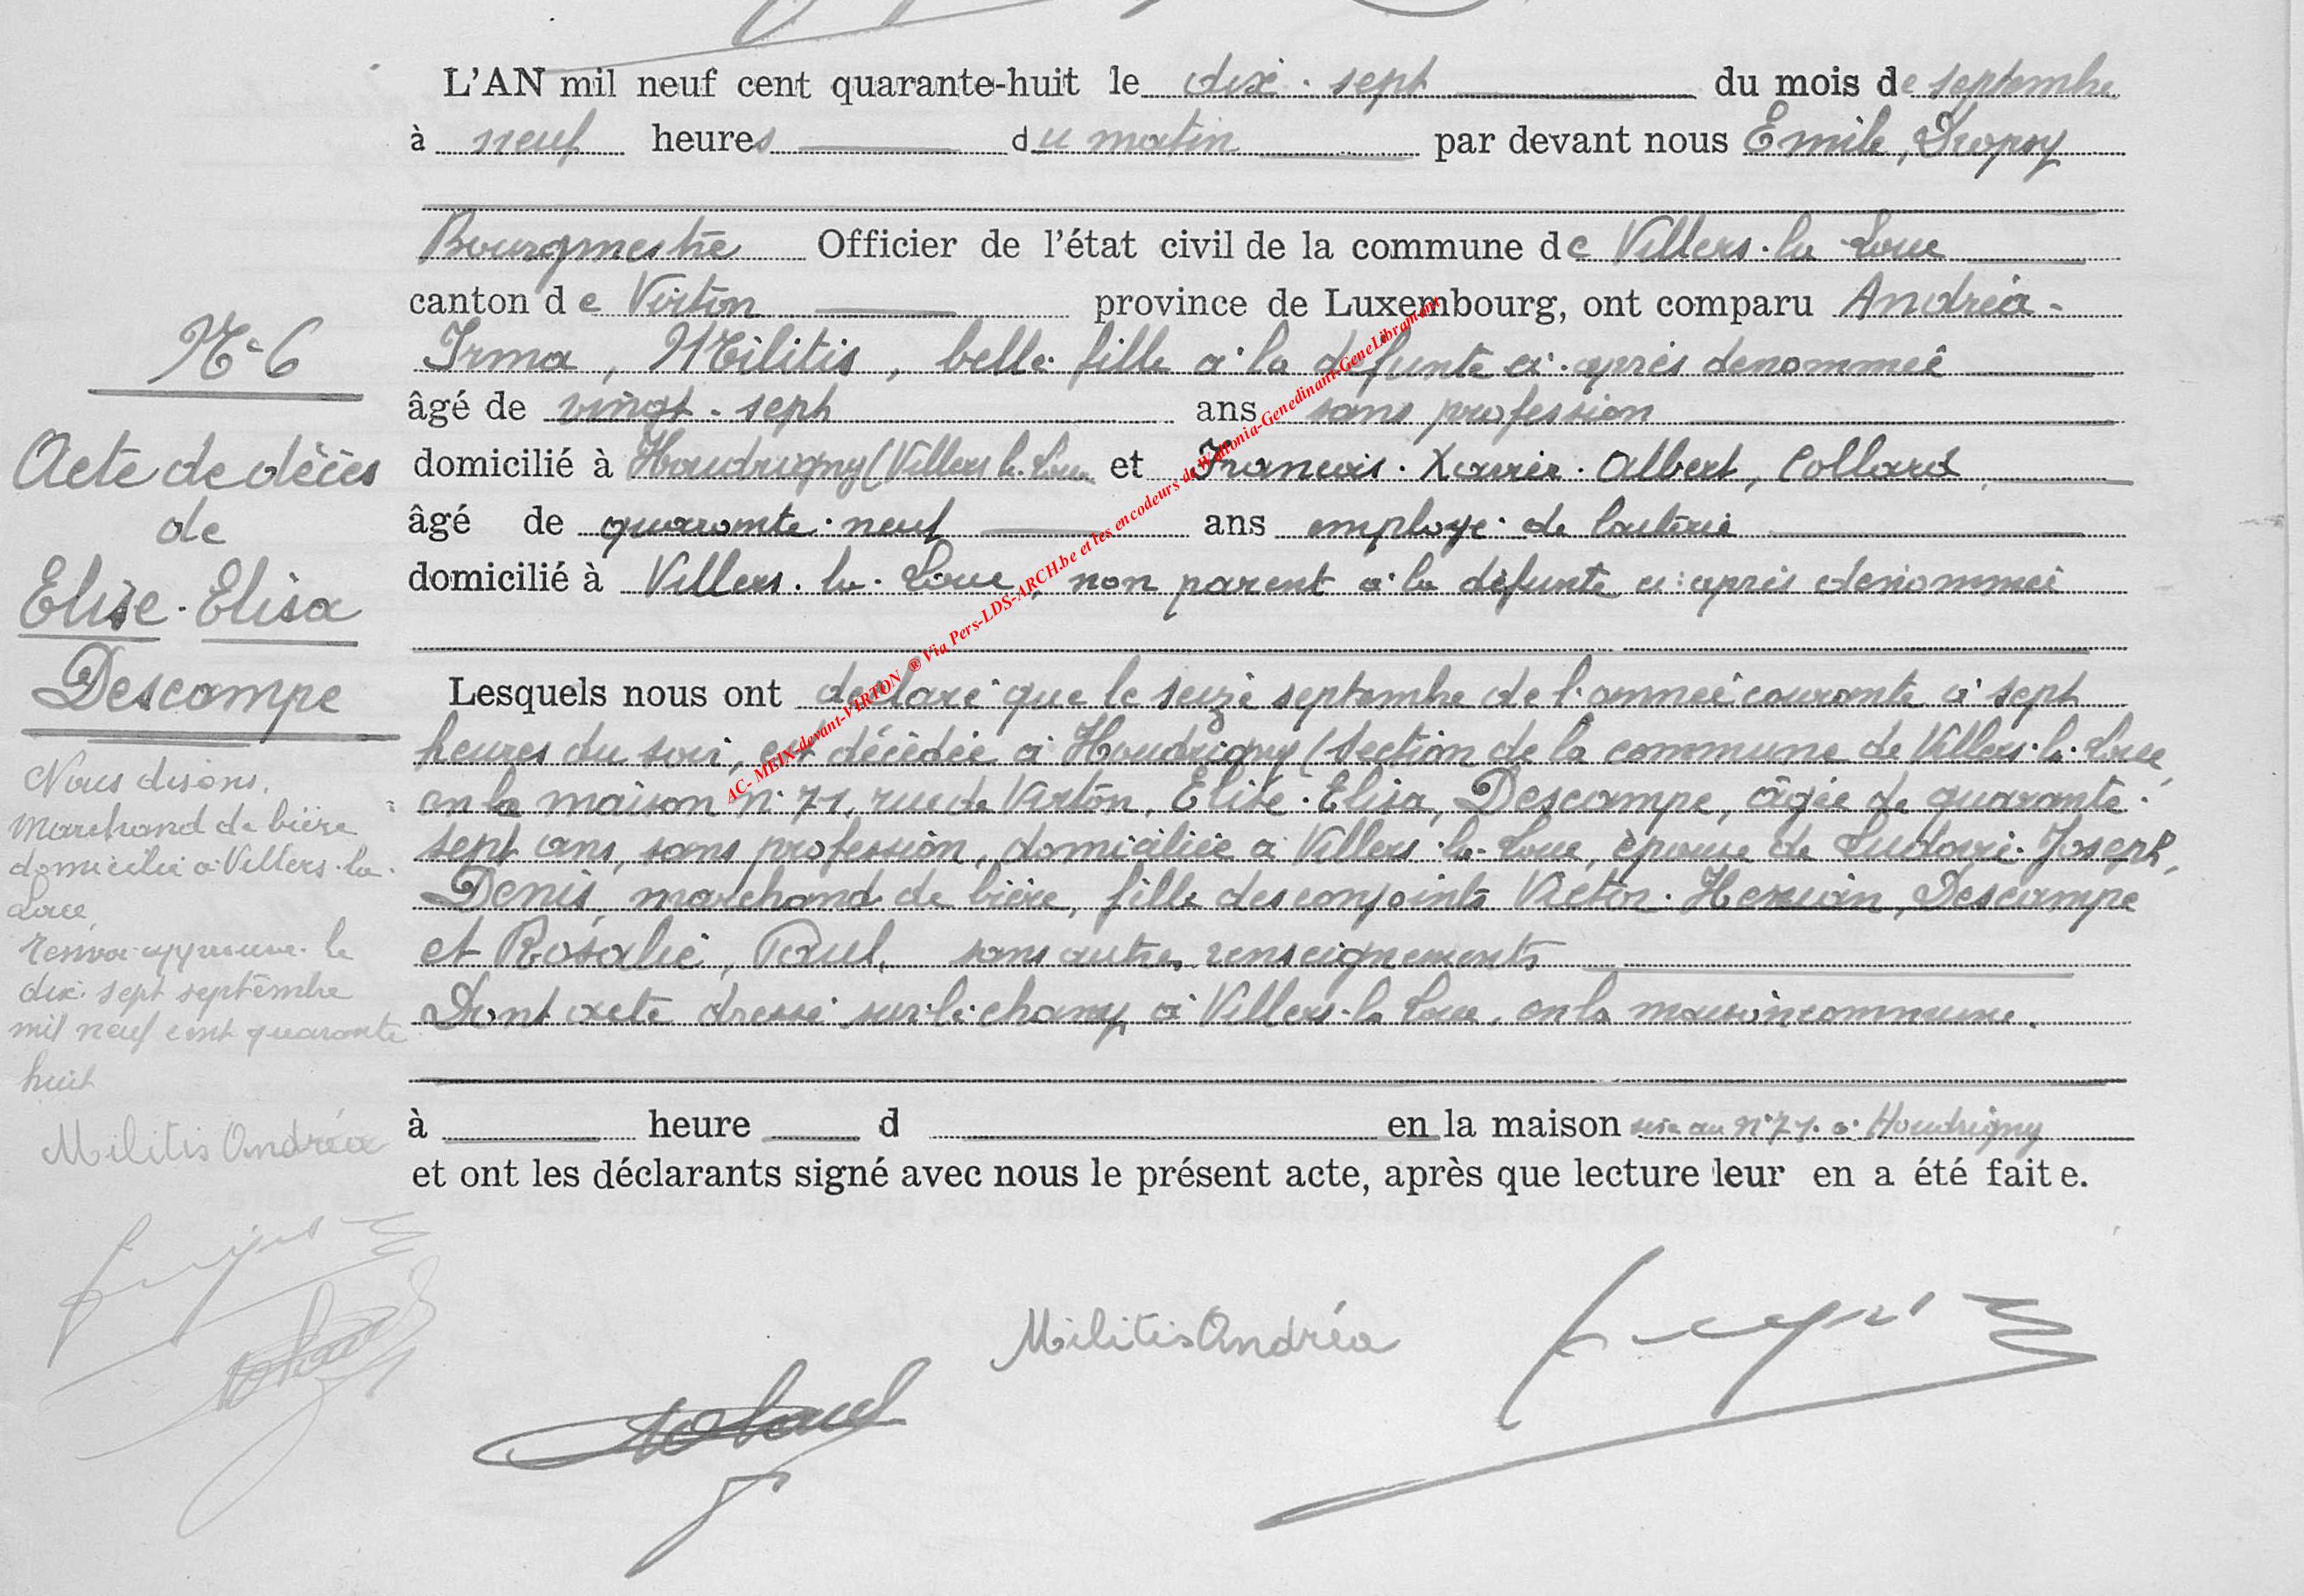 L'AN mil neuf cent quarante-huit le dix-sept du mois de septembre
à neuf heures du matin par devant nous Emile, Dropsy
Bourgmestre Officier de l'état civil de la commune de Villers-la-Loue
canton de Virton province de Luxembourg, ont comparu Andréa-
Irma, Militis, belle-fille à la défunte ci-après denommée
âgé de vingt-sept ans sans profession
domicilié à Houdrigny (Villers-la-Loue et Francois-Xavier-Albert, Collard
âgé de quarante-neuf ans employé de laiterie
domicilié à Villers-la-Loue, non parent à la défunte ci-après denommée
Lesquels nous ont declaré que le seize septembre de l'année courante à sept
heures du soir, est décédée à Houdrigny (section de la commune de Villers-la-Loue
en la maison n° 71, rue de Virton, Elise-Elisa, Descampe, âgée de quarante-
sept ans, sans profession, domiciliée à Villers-la-Loue, épouse de Ludovic-Joseph,
Denis, marchand de bière, fille des conjoints Victor- Descampe
et Rosalie, Paul, sans autres renseignements
Dont acte dressé sur-le-champ à Villers-la-Loue, en la maison commune.
à heure d en la maison sise au N° 71 à Houdrigny
et ont les déclarants signé avec nous le présent acte, après que lecture leur en a été faite.
Militis Andréa
N° 6
Acte de décès
de
Elise-Elisa
Descampe
Nous disons,
Marchand de bière
domicilié à Villers-la-
Loue
renvoi approuvé le
dix-sept septembre
mil neuf cent quarante
huit
Militis Andréa
AC- MEIX-devant-VIRTON ® Via Pers-LDS-ARCH.be et les encodeurs de Wallonia-Genedinant-GeneLibramont